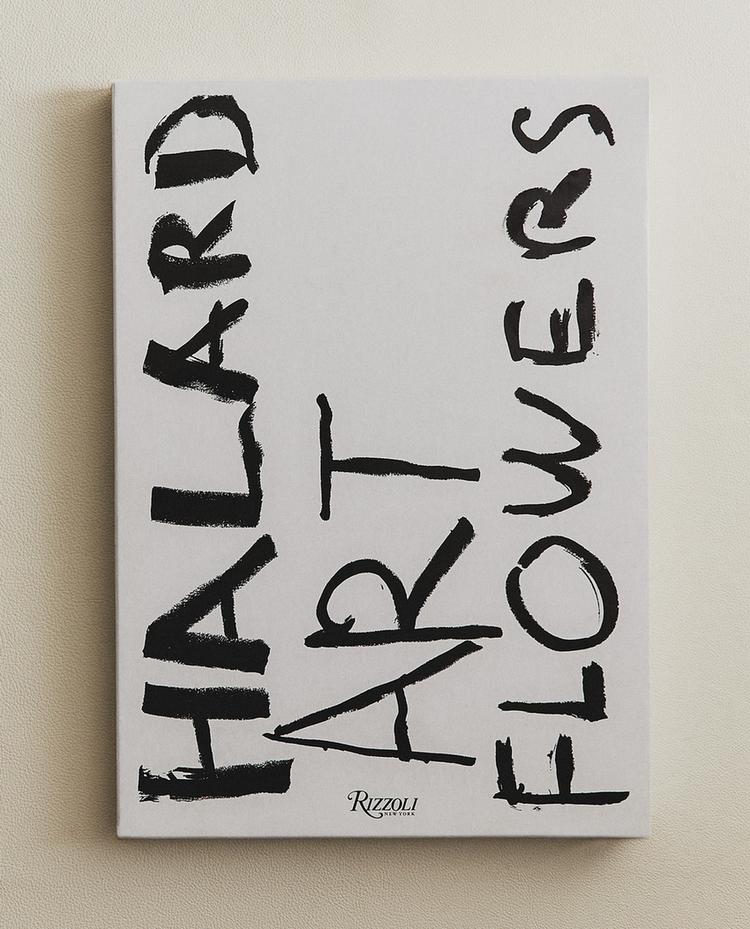 HALARD
ART
FLOWERS
RIZZOLI
NEW YORK